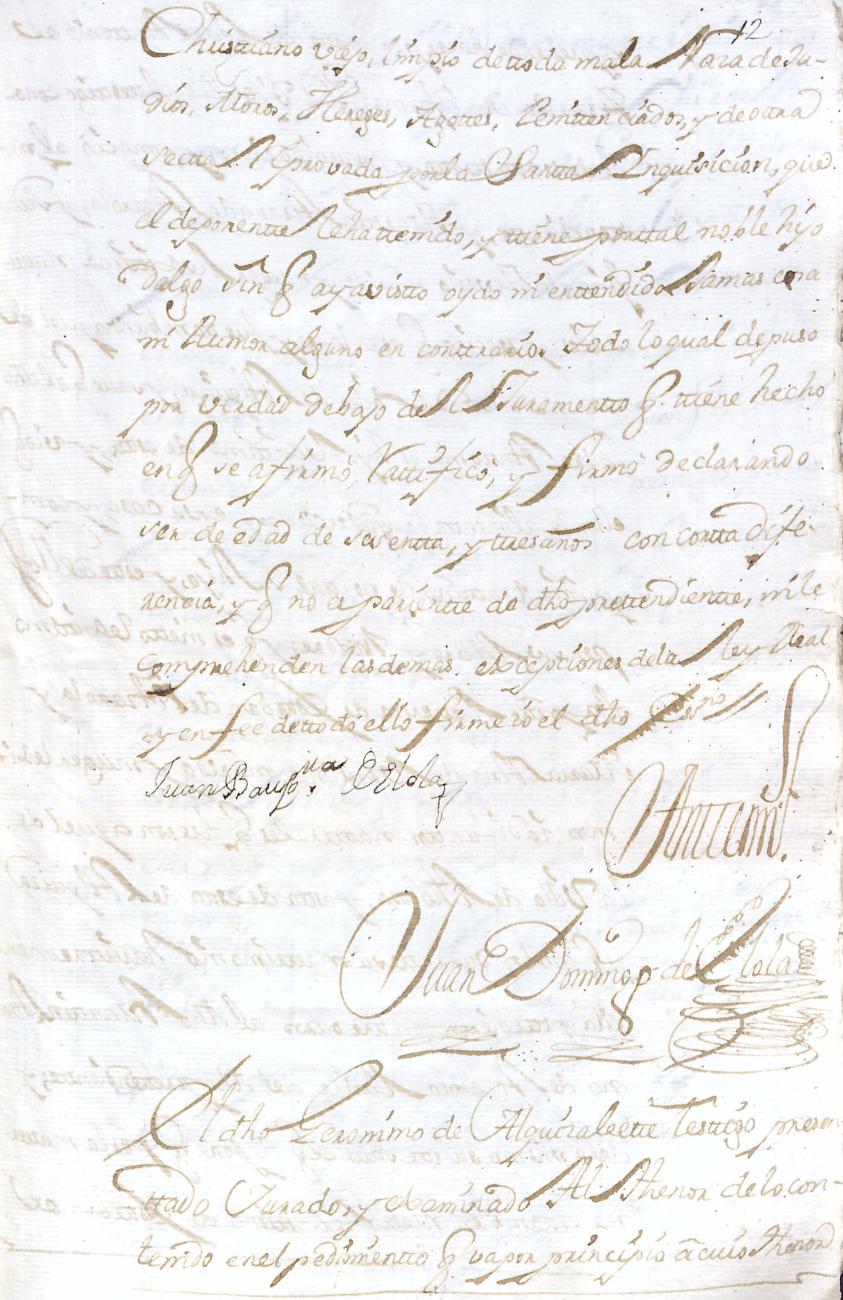 12
Christiano viejo, limpio de ttoda mala Raza de Ju-
dios, Moros, Hereges, Agottes, Penittenciados, y de ottra
Sectta Reprovada por la Santta Ynquisicion, que
el deponentte le ha ttenido, y ttiene por ttal noble hijo
dalgo sin q aya visto oydo ni enttendido Jamas cosa
ni Rumor alguno en conttrario. Todo lo qual depuso
por verdad debajo del Juramentto q. ttiene hecho
en q se afirmó, Rattificó, y firmó declarando
ser de edad de sesentta, y ttres años con cortta dife-
rencia, y q no es parientte de dho prettendientte, ni le
comprehenden las demas excepttiones de la Ley Real
y en fee de ttodo ello firmé io el dho Essno
Juan Baupta. de Elola
Antte mi.
Juan Domingo de Elola
El dho Geronimo de Alquizaleette Testtigo presen-
ttado Jurado, y examinado Al Thenor de lo con-
tenido en el pedimentto q va por principio a cuio thenor